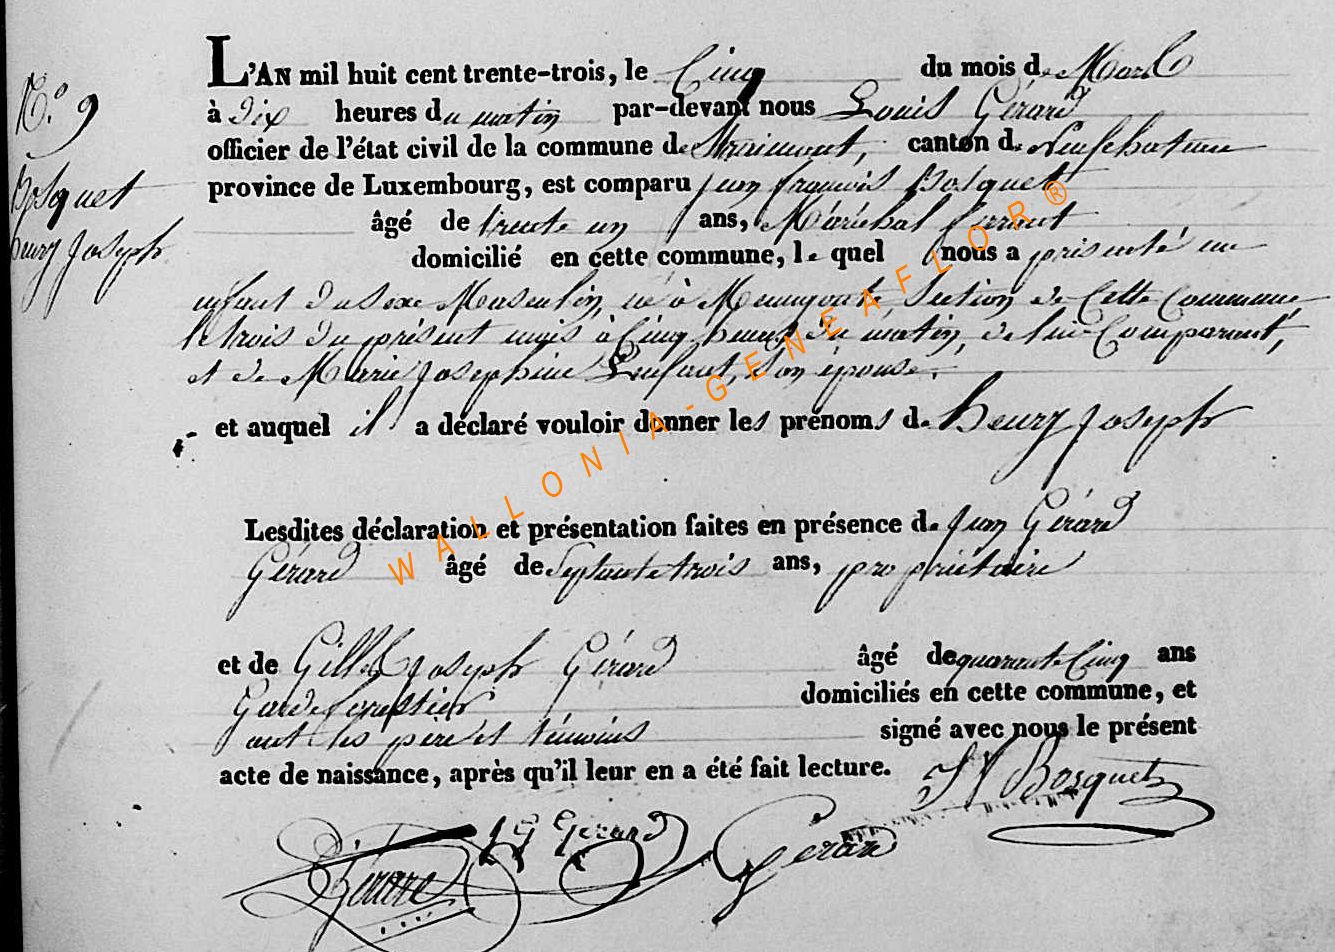 N.° 9
Bosquet
henry Joseph
L'AN mil huit cent trente-trois, le Cinq du mois de Mars
à dix heures du matin par-devant nous Louis Gérard
officier de l'état civil de la commune de Straimont, canton de Neufchateau
province de Luxembourg, est comparu jean françois Bosquet
âgé de trente un ans, Maréchal ferrant
domicilié en cette commune, le quel nous a présenté un
enfant du sexe Masculin, né à Section de Cette Commune
le trois du présent mois à Cinq heures du matin, de lui Comparant,
et de Marie Josephine Lenfant, son épouse.
et auquel il a déclaré vouloir donner les prénoms de henry Joseph
Lesdites déclaration et présentation faites en présence de jean Gérard
Gérard âgé de septante trois ans, propriétaire
et de Gilles Joseph Gérard âgé de quarante Cinq ans
Garde forestier domiciliés en cette commune, et
ont les père et témoins signé avec nous le présent
acte de naissance, après qu'il leur en a été fait lecture.
J f Bosquet
J G Gerard
Gérard
Gerard
WALLONIA-GENEAFLOR®